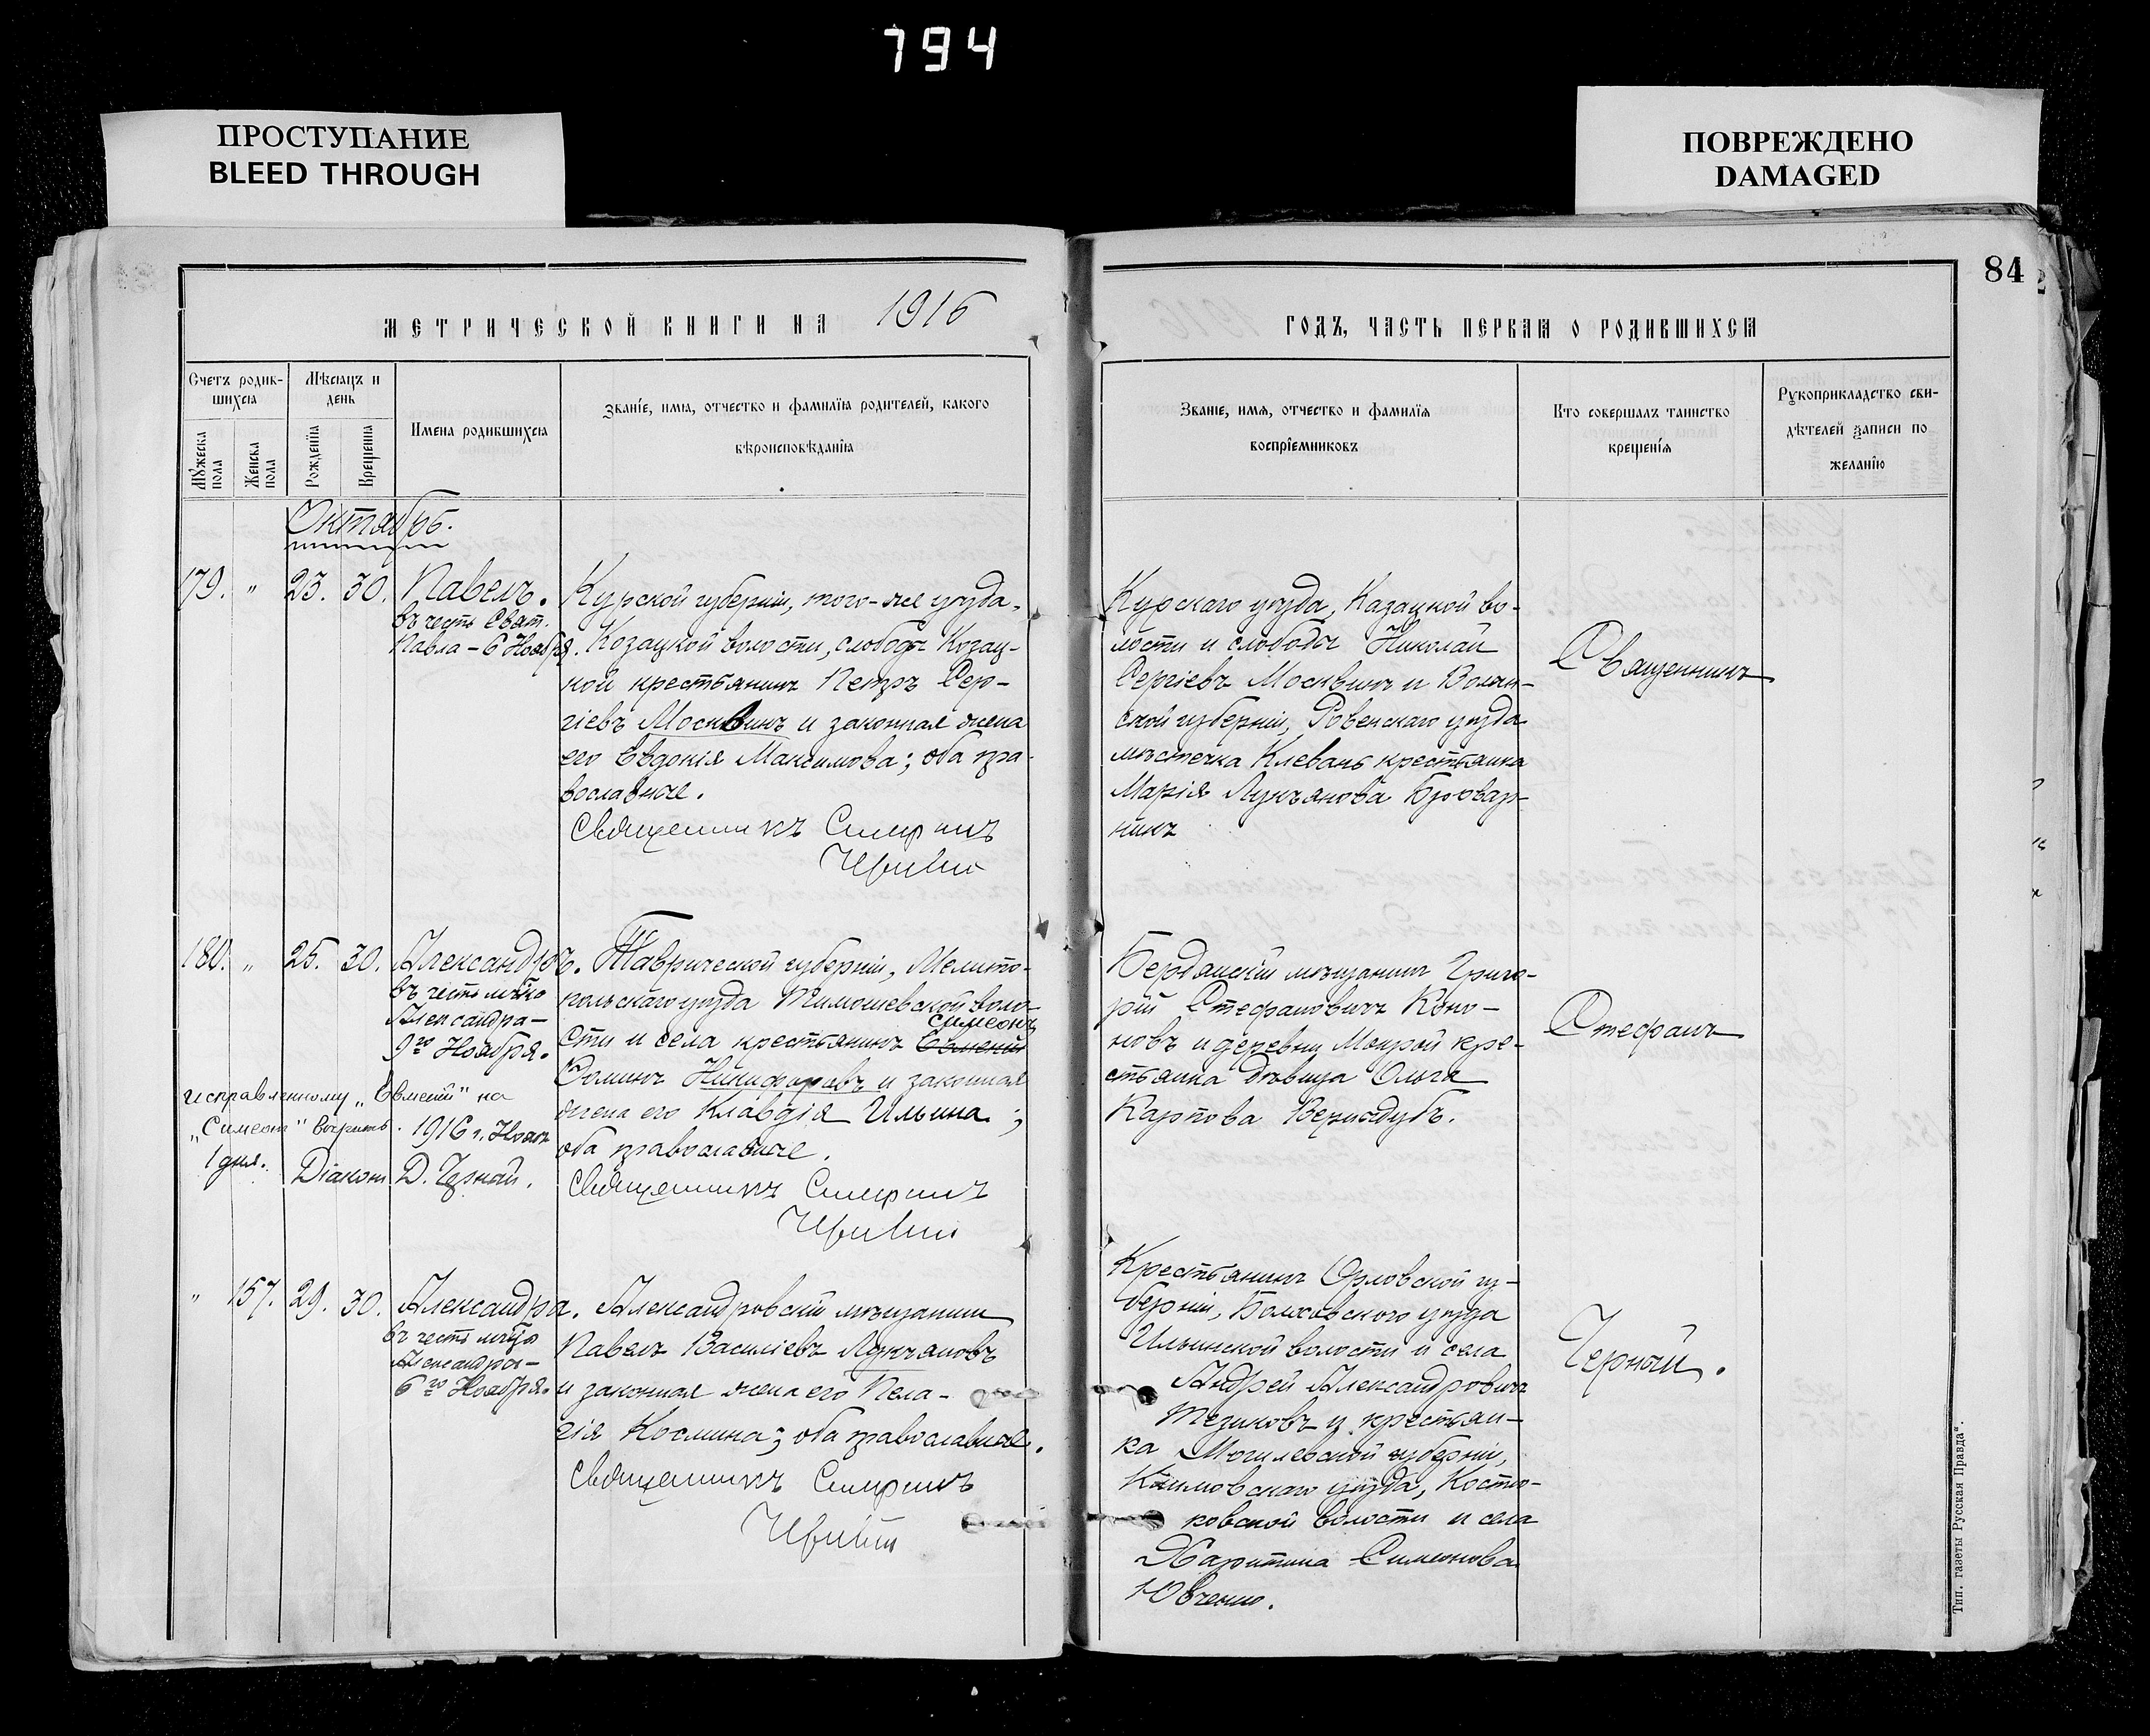 794
ПРОСТУПАНИЕ
BLEED THROUGH
ПОВРЕЖДЕНО
DAMAGED
84
МЕТРИЧЕСКОЙ КНИГИ НА 1916
ГОДЪ, ЧАСТЬ ПЕРВАЯ О РОДИВШИХСЯ
Счетъ родив-
шихся
Мужеска
пола
Женска
пола
Мѣсяцъ и
день
Рожденія
Крещенія
Имена родившихся
Званіе, имя, отчество и фамилія родителей, какого
вѣроисповѣданія
Званіе, имя, отчество и фамилія
воспріемниковъ
Кто совершалъ таинство
крещенія
Рукоприкладство сви-
дѣтелей записи по
желанію
Октябрь.
179. " 23. 30. Павелъ.
въ честь Свят.
Павла - 6 Ноября.
Курской губерніи, того-же уѣзда,
Козацкой волости, слободы Козац-
кой крестьянинъ Петръ Сер-
гіевъ Москвинъ и законная жена
его Евдокія Максимова; оба пра-
вославные.
Священникъ
Курскаго уѣзда, Казацкой во-
лости и слободы Николай
Сергіевъ Москвинъ и Волын-
ской губерніи, Ровенскаго уѣзда
мѣстечка Клевань крестьянка
Марія Лукьянова Бровар-
никъ
Священникъ
180. " 25. 30. Александръ.
въ честь мѣнко
Александра -
9го Ноября.
Таврической губерніи, Мелито-
польскаго уѣзда Тимошевской воло-
Симеонъ
сти и села крестьянинъ Евменій
Никифоровъ и законная
жена его Клавдія Ильина;
оба православные.
Священникъ
исправленному „Евменій" на
„Симеонъ" вѣрить. 1916 г. Нояб
1 дня. Діаконъ Д. Черный.
Бердянскій мѣщанинъ Григо-
рій Стефановичъ Коно-
новъ и деревни Мокрой кре-
стьянка дѣвица Ольга
Карпова Вернидубъ.
Стефанъ
" 157. 29. 30. Александра.
въ честь мч҃цы
Александры -
6го Ноября.
Александровскій мѣщанинъ
Павелъ Василіевъ Лукьяновъ
и законная жена его Пела-
гія Космина; оба православные.
Священникъ
Крестьянинъ Орловской гу-
берніи, Болховского уѣзда
Ильинской волости и села
Андрей Александровичъ
Тезиковъ и крестьян-
ка Могилевской губерніи,
Климовскаго уѣзда, Костю-
ковской волости и села
Харитина Симеонова
Ювченко.
Черный.
Тип. газеты Русская Правда".